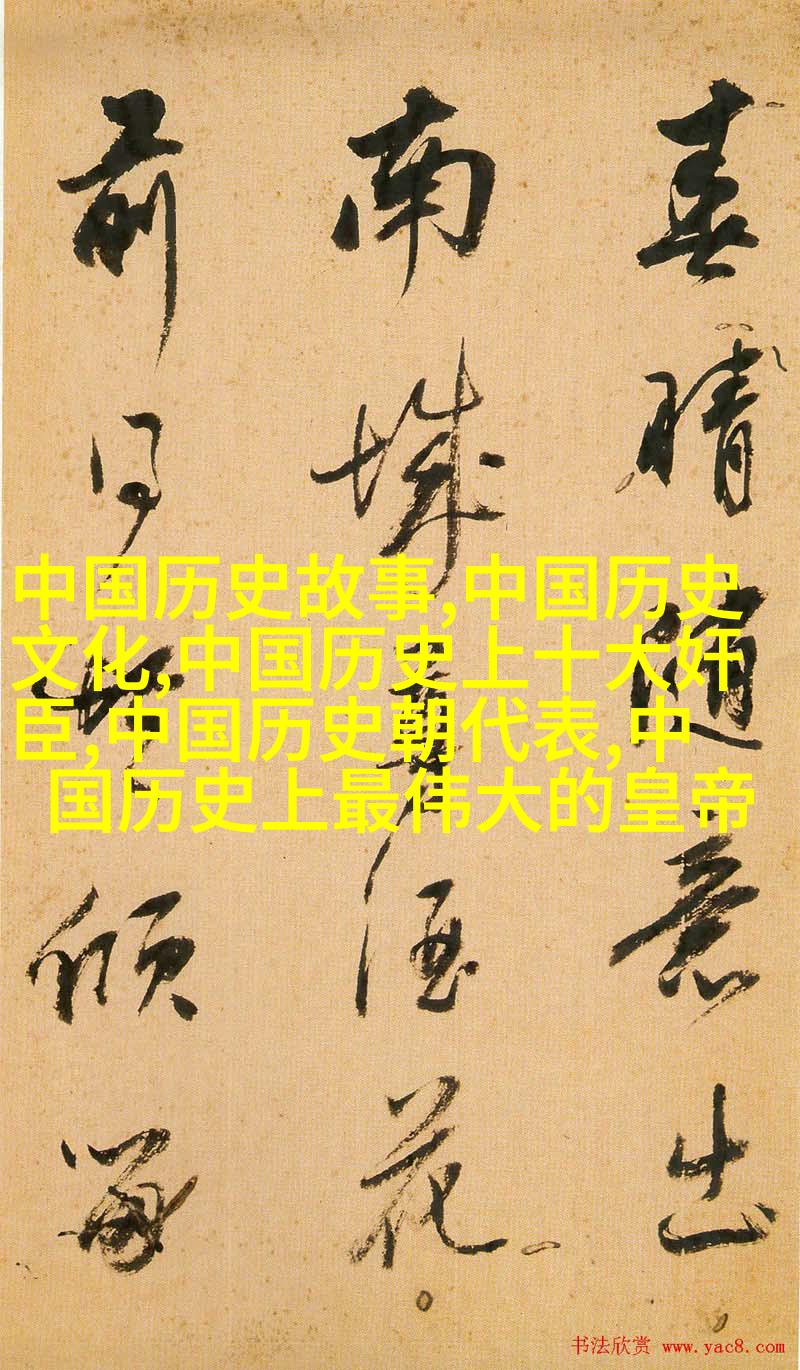 春晴随意出
南城酒花
前同傾留
中国历史故事,中国历史
文化,中国历史上十大奸
臣,中国历史朝代表,中
国历史上最伟大的皇帝
书法欣赏 www.yac8.com